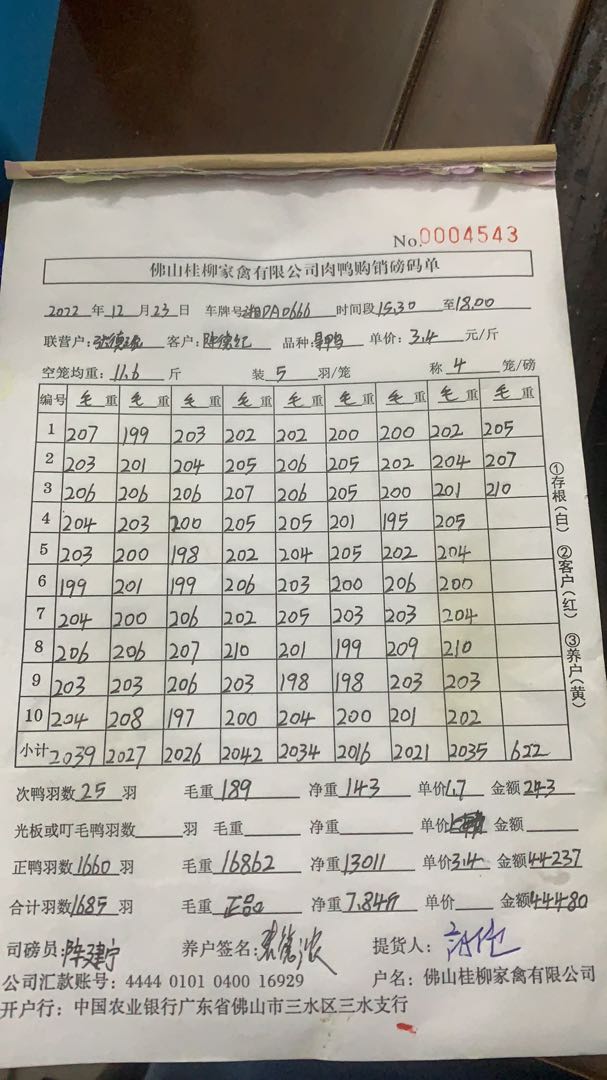 No.0004543
佛山桂柳家禽有限公司肉鸭购销磅码单
2022 年 12 月 23 日 车牌号 湘DA0666 时间段 15.30 至 18.00
联营户: 客户: 品种: 单价: 3.4 元/斤
空笼均重: 11.6 斤 装 5 羽/笼 称 4 笼/磅
编号 毛 重 毛 重 毛 重 毛 重 毛 重 毛 重 毛 重 毛 重 毛 重
1 207 199 203 202 202 200 200 202 205
2 203 201 204 205 206 205 202 204 207
3 206 206 206 207 206 205 200 201 210
4 204 203 200 205 205 201 195 205
5 203 200 198 202 204 205 202 204
6 199 201 199 206 203 200 206 200
7 204 200 206 202 205 203 203 204
8 206 206 207 210 201 199 209 210
9 203 203 206 203 198 198 203 203
10 204 208 197 200 204 200 201 202
小计 2039 2027 2026 2042 2034 2016 2021 2035 622
①存根(白) ②客户(红) ③养户(黄)
次鸭羽数 25 羽 毛重 189 净重 143 单价 1.7 金额 243
光板或叮毛鸭羽数 羽 毛重 净重 单价 金额
正鸭羽数 1660 羽 毛重 16862 净重 13011 单价 3.4 金额 44237
合计羽数 1685 羽 毛重 正品 净重 7.84斤 单价 金额 44480
司磅员: 陈建宁 养户签名: 提货人:
公司汇款账号: 4444 0101 0400 16929 户名: 佛山桂柳家禽有限公司
开户行: 中国农业银行广东省佛山市三水区三水支行